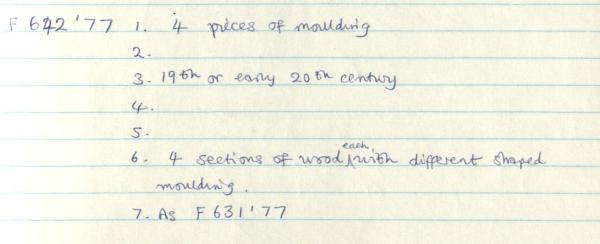 F 642 '77 1. 4 pieces of moulding
2.
3. 19th or early 20th century
4.
5.
6. 4 sections of wood, each with different shaped
moulding.
7. As F 631 '77